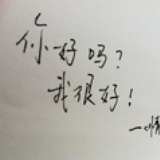 你好吗？
我很好！
一晴